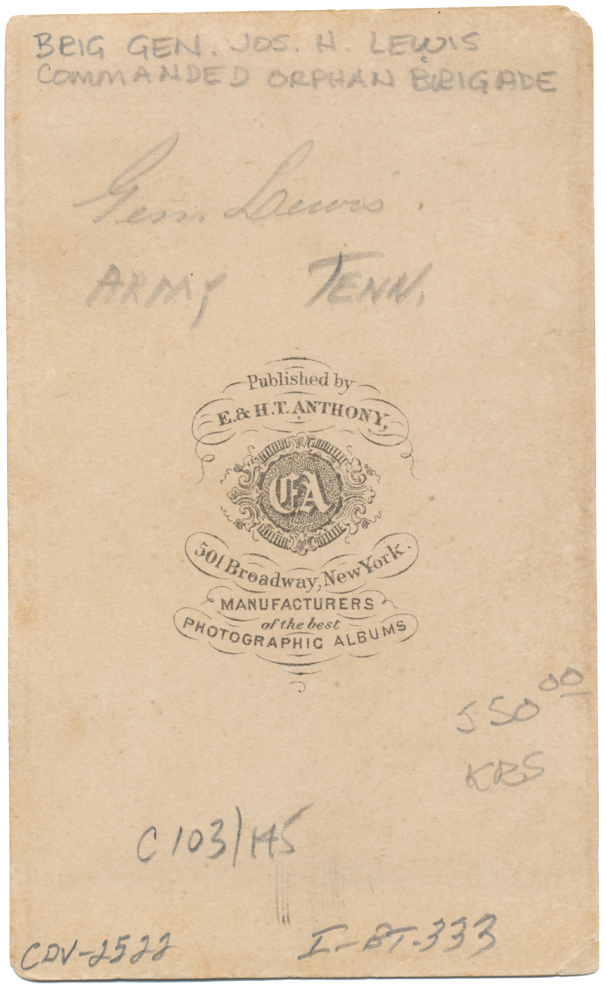 BRIG GEN. JOS. H. LEWIS
COMMANDED ORPHAN BRIGADE
Gen. Lewis.
ARMY TENN.
Published by
E. & H. T. ANTHONY,
EA
501 Broadway, New York.
MANUFACTURERS
of the best
PHOTOGRAPHIC ALBUMS
550 00
KRS
C103/145
CDV-2522
I-BT-333